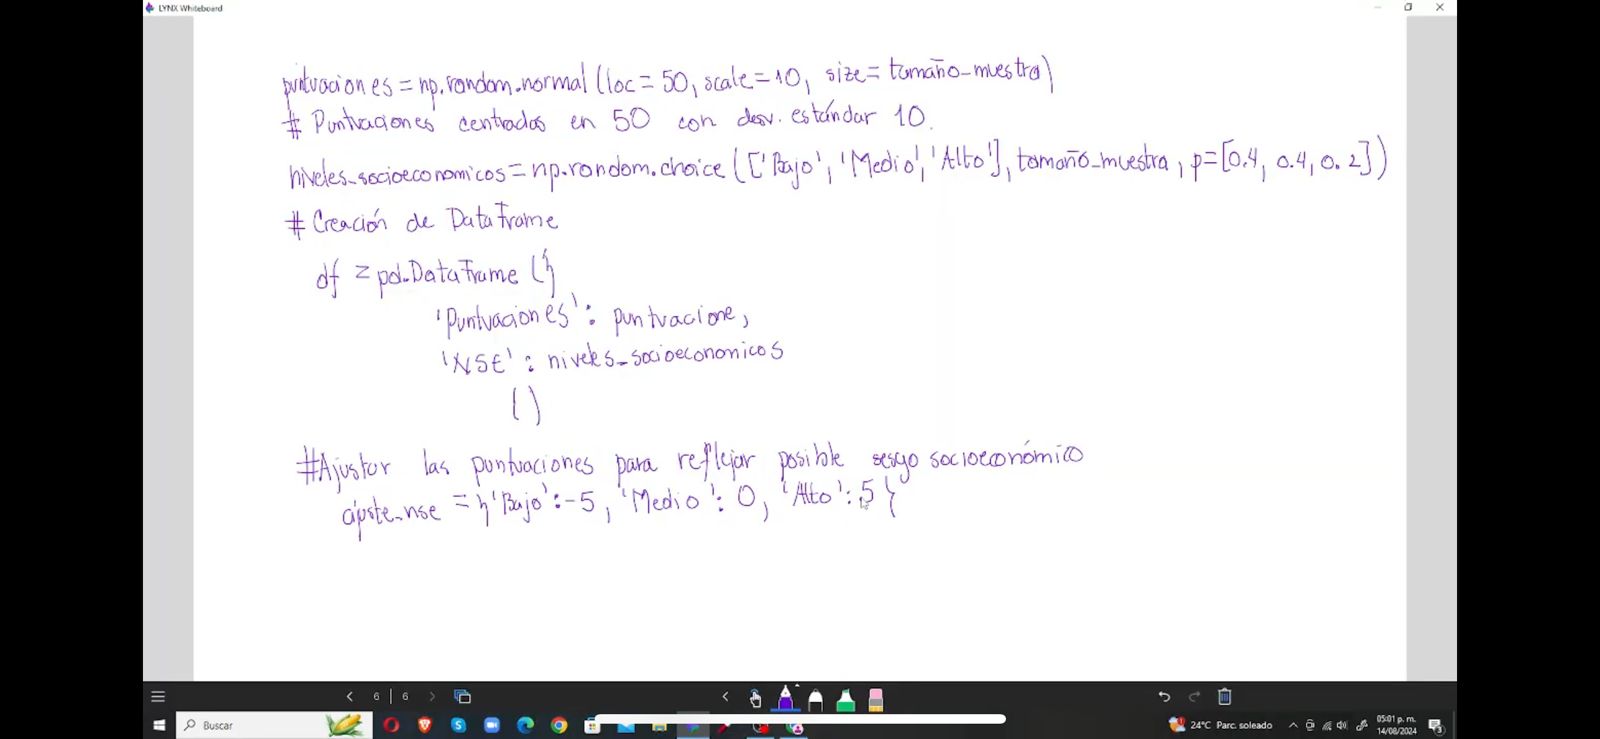 LYNX Whiteboard
puntuaciones = np.random.normal (loc = 50, scale = 10, size = tamaño_muestra)
# Puntuaciones centradas en 50 con desv. estándar 10.
niveles_socioeconomicos = np.random.choice (['Bajo', 'Medio', 'Alto'], tamaño_muestra, p=[0.4, 0.4, 0.2])
# Creación de DataFrame
df = pd.DataFrame ({
'Puntuaciones': puntuacione,
'NSE': niveles_socioeconomicos
()
#Ajustar las puntuaciones para reflejar posible sesgo socioeconómico
ajuste_nse = {'Bajo': -5, 'Medio': 0, 'Alto': 5}
6 | 6
Buscar
24°C Parc. soleado
05:01 p. m.
14/08/2024
3